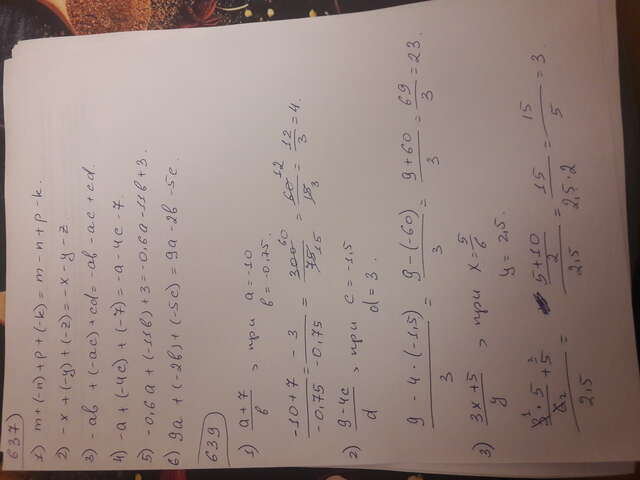 637)
1) m+(-n)+p+(-k)= m-n+p-k.
2) -x+(-y)+(-z)=-x-y-z.
3) -ab+(-ac)+cd=-ab-ac+cd.
4) -a+(-4c)+(-7)=-a-4c-7.
5) -0,6a+(-11b)+3=-0,6a-11b+3.
6) 9a+(-2b)+(-5c)=9a-2b-5c.
639
1) (a+7)/b, при a=-10
b=-0,75.
(-10+7)/(-0,75) = (-3)/(-0,75) = 300/75 60 15 = 60/15 12 3 = 12/3 = 4.
2) (9-4c)/d, при c=-1,5
d=3.
(9-4·(-1,5))/3 = (9-(-60))/3 = (9+60)/3 = 69/3 = 23.
3) (3x+5)/y, при x=5/6
y=2,5.
(3·5/6 1 2 +5 2)/2,5 = ((5+10)/2)/2,5 = 15/(2,5·2) = 15/5 = 3.